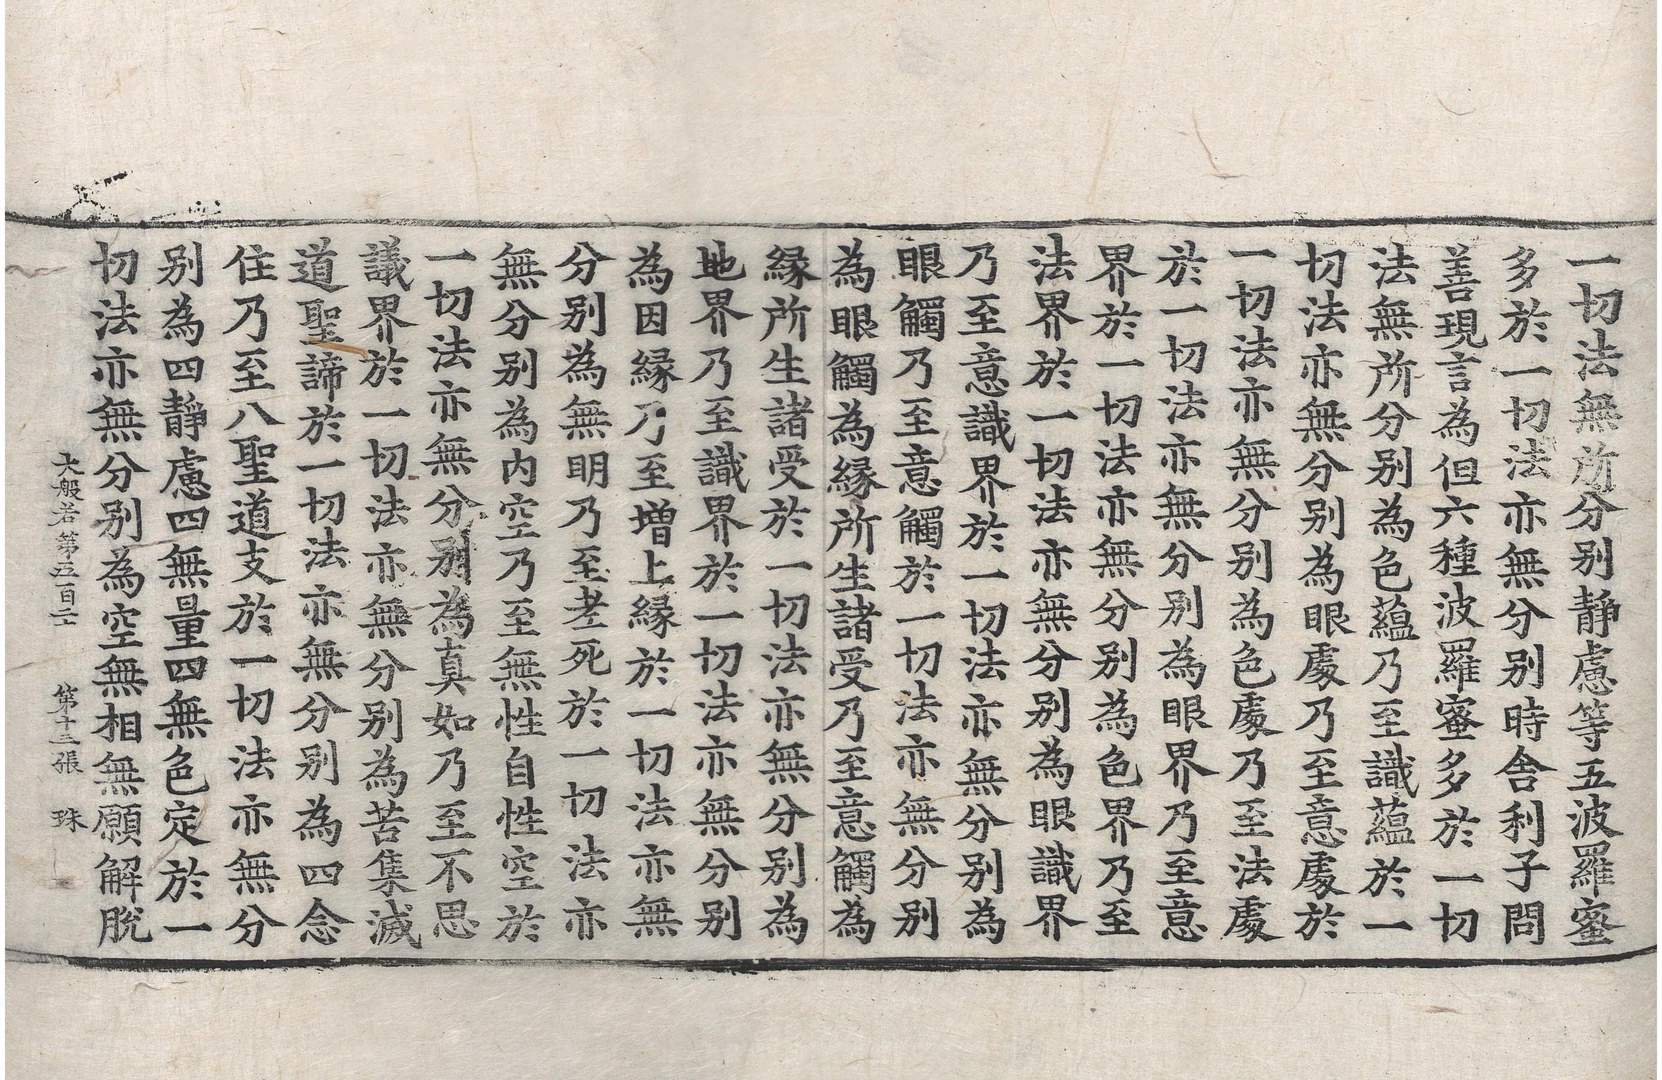 一切法無所分别靜慮等五波羅蜜
多於一切法亦無分别時舍利子問
善現言為但六種波羅蜜多於一切
法無所分别為色蘊乃至識蘊於一
切法亦無分别為眼處乃至意處於
一切法亦無分别為色處乃至法處
於一切法亦無分别為眼界乃至意
界於一切法亦無分别為色界乃至
法界於一切法亦無分别為眼識界
乃至意識界於一切法亦無分别為
眼觸乃至意觸於一切法亦無分别
為眼觸為緣所生諸受乃至意觸為
緣所生諸受於一切法亦無分别為
地界乃至識界於一切法亦無分别
為因緣乃至增上緣於一切法亦無
分别為無明乃至老死於一切法亦
無分别為内空乃至無性自性空於
一切法亦無分别為真如乃至不思
議界於一切法亦無分别為苦集滅
道聖諦於一切法亦無分别為四念
住乃至八聖道支於一切法亦無分
别為四靜慮四無量四無色定於一
切法亦無分别為空無相無願解脫
大般若第五百二 第十三張 珠